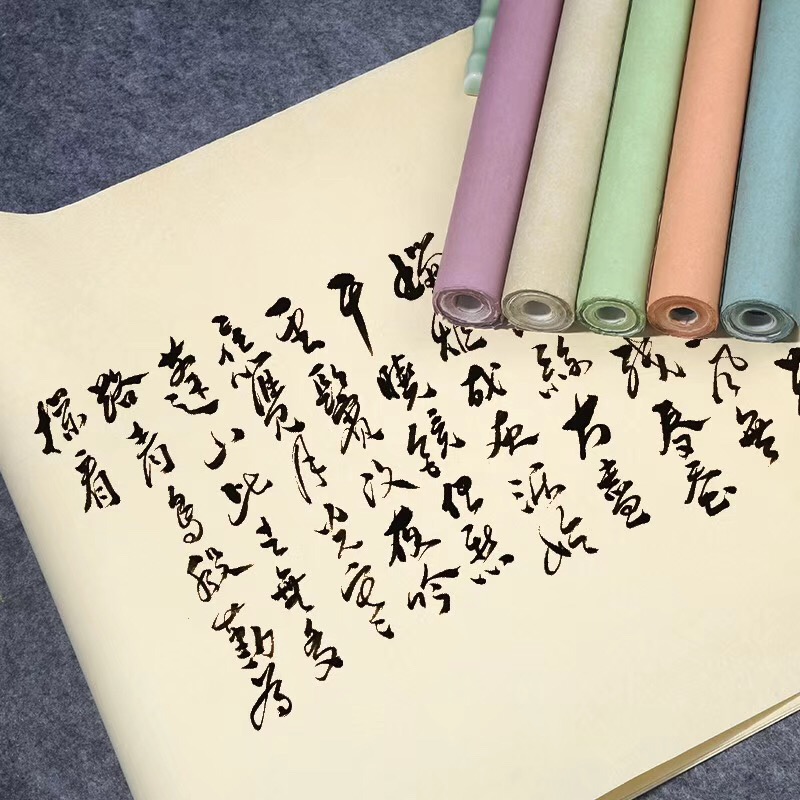 風無
殘春蚕
絲方盡
蠟炬成灰淚始
干曉鏡但愁
雲鬢改夜吟
應覺月光寒
蓬山此去無多
路青鳥殷勤為
探看